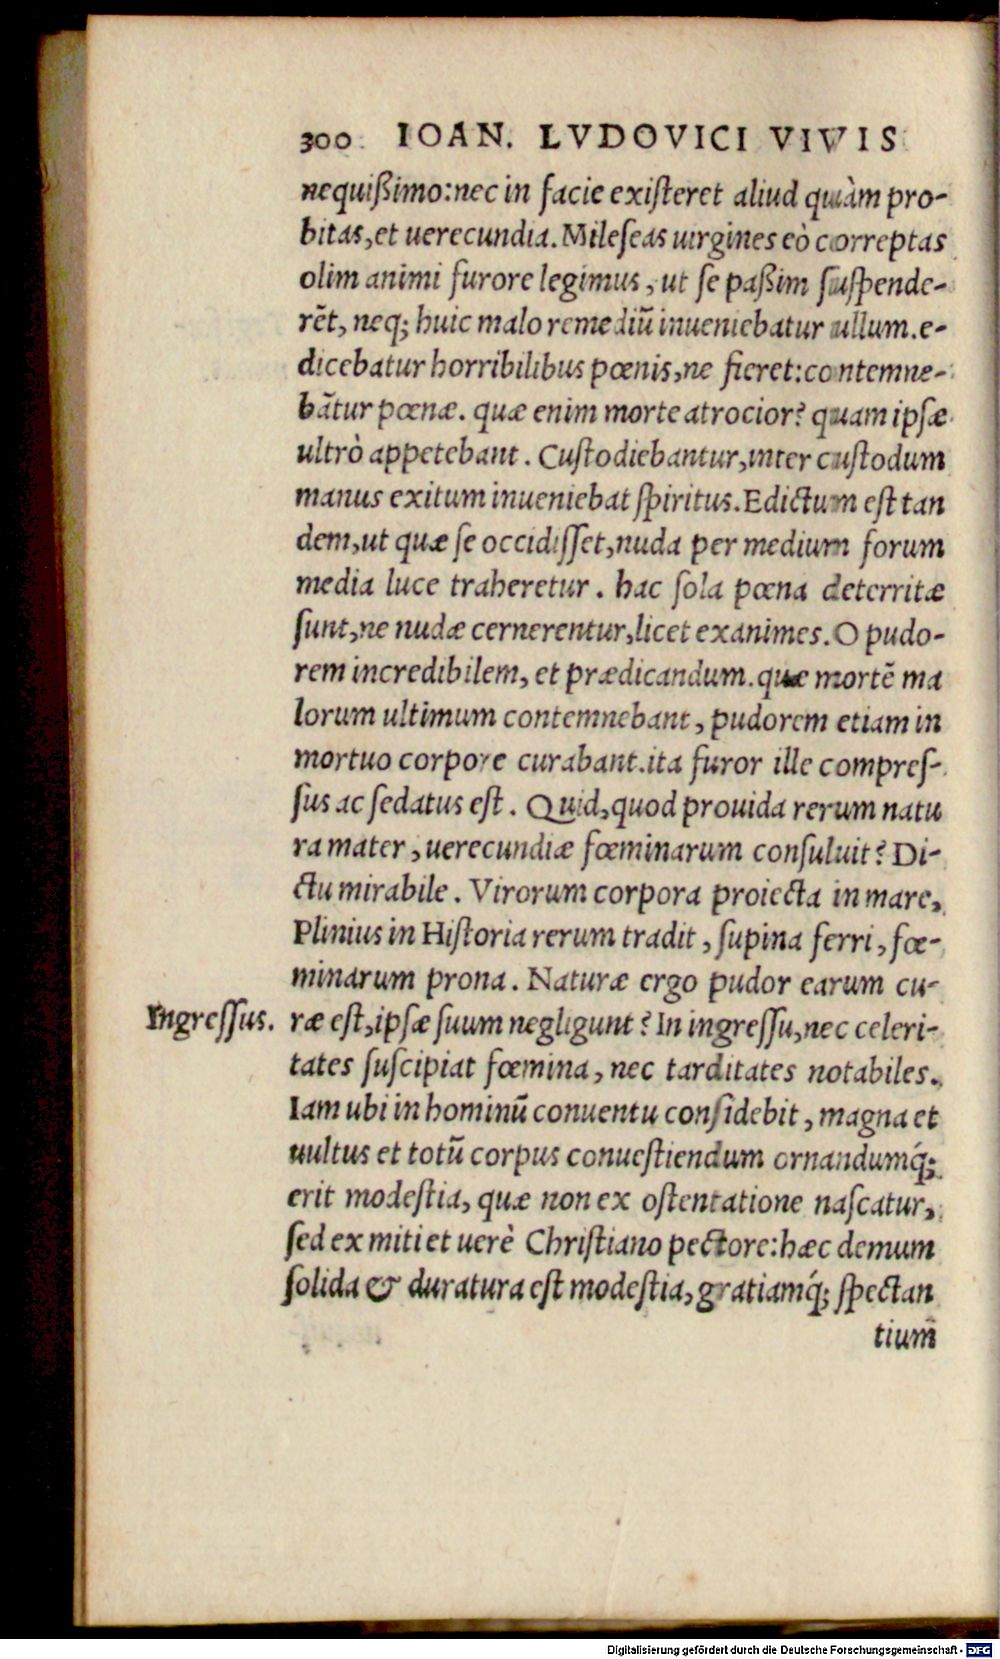 300 IOAN. LVDOVICI VIVIS
nequißimo: nec in facie existeret aliud quàm pro-
bitas, et uerecundia. Mileseas uirgines eò correptas
olim animi furore legimus, ut se paßim suspende-
rēt, neq; huic malo remediū inueniebatur ullum. e-
dicebatur horribilibus pœnis, ne fieret: contemne-
bātur pœnæ. quæ enim morte atrocior? quam ipsæ
ultrò appetebant. Custodiebantur, inter custodum
manus exitum inueniebat spiritus. Edictum est tan
dem, ut quæ se occidisset, nuda per medium forum
media luce traheretur. hac sola pœna deterritæ
sunt, ne nudæ cernerentur, licet exanimes. O pudo-
rem incredibilem, et prædicandum. quæ mortē ma
lorum ultimum contemnebant, pudorem etiam in
mortuo corpore curabant. ita furor ille compres-
sus ac sedatus est. Quid, quod prouida rerum natu
ra mater, uerecundiæ fœminarum consuluit? Di-
ctu mirabile. Virorum corpora proiecta in mare,
Plinius in Historia rerum tradit, supina ferri, fœ-
minarum prona. Naturæ ergo pudor earum cu-
Ingressus. ræ est, ipsæ suum negligunt? In ingressu, nec celeri-
tates suscipiat fœmina, nec tarditates notabiles.
Iam ubi in hominū conuentu considebit, magna et
uultus et totū corpus conuestiendum ornandumq́;
erit modestia, quæ non ex ostentatione nascatur,
sed ex miti et uerè Christiano pectore: hæc demum
solida & duratura est modestia, gratiamq́; spectan
tium
Digitalisierung gefördert durch die Deutsche Forschungsgemeinschaft - DFG